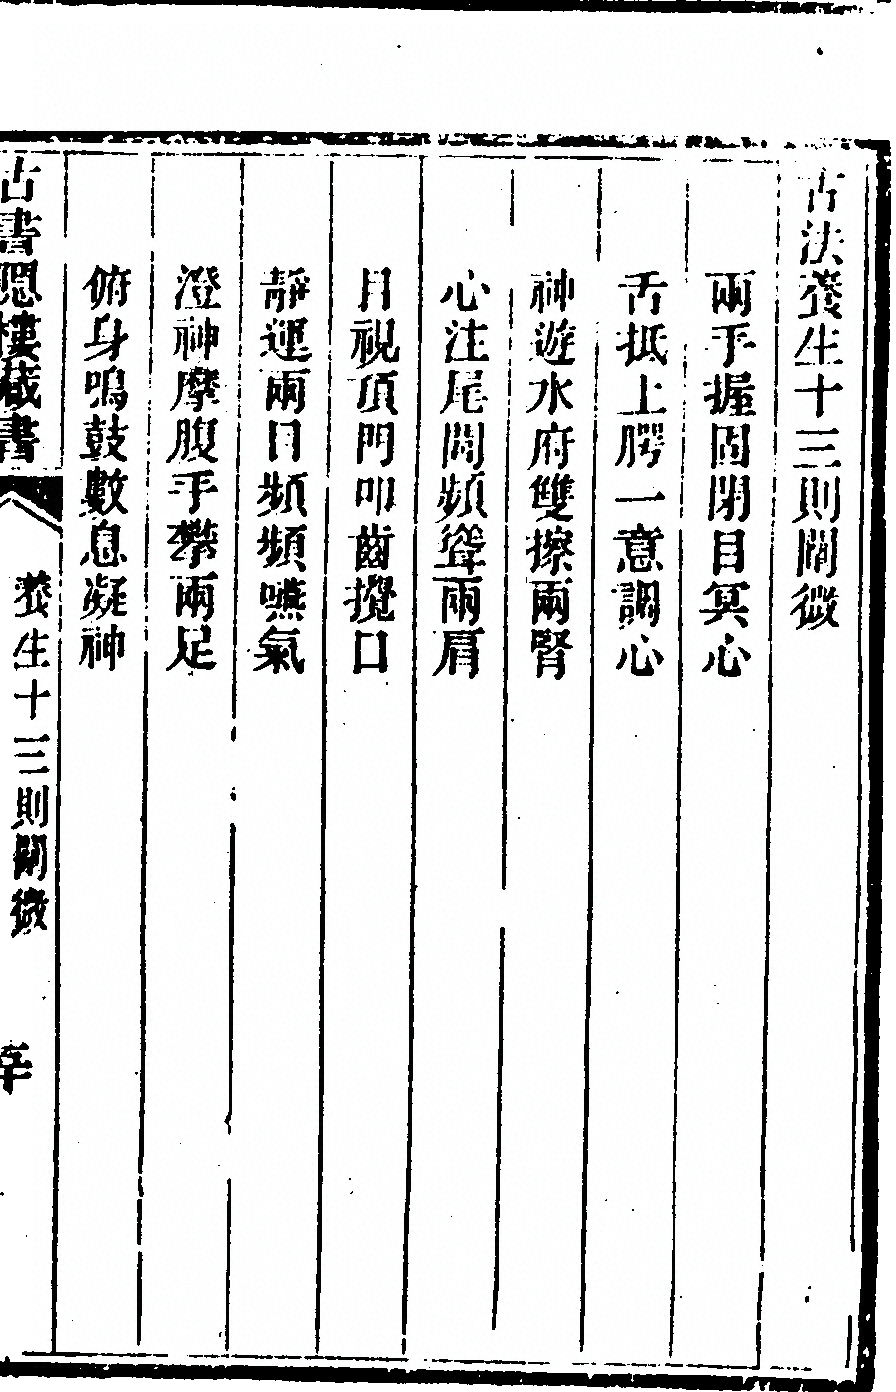 古法養生十三則闡微
兩手握固閉目冥心
舌抵上腭一意調心
神遊水府雙擦兩腎
心注尾閭頻聳兩肩
目視頂門叩齒攪口
靜運兩目頻頻嚥氣
澄神摩腹手攀兩足
俯身鳴鼓數息凝神
古書隱樓藏書
養生十三則闡微